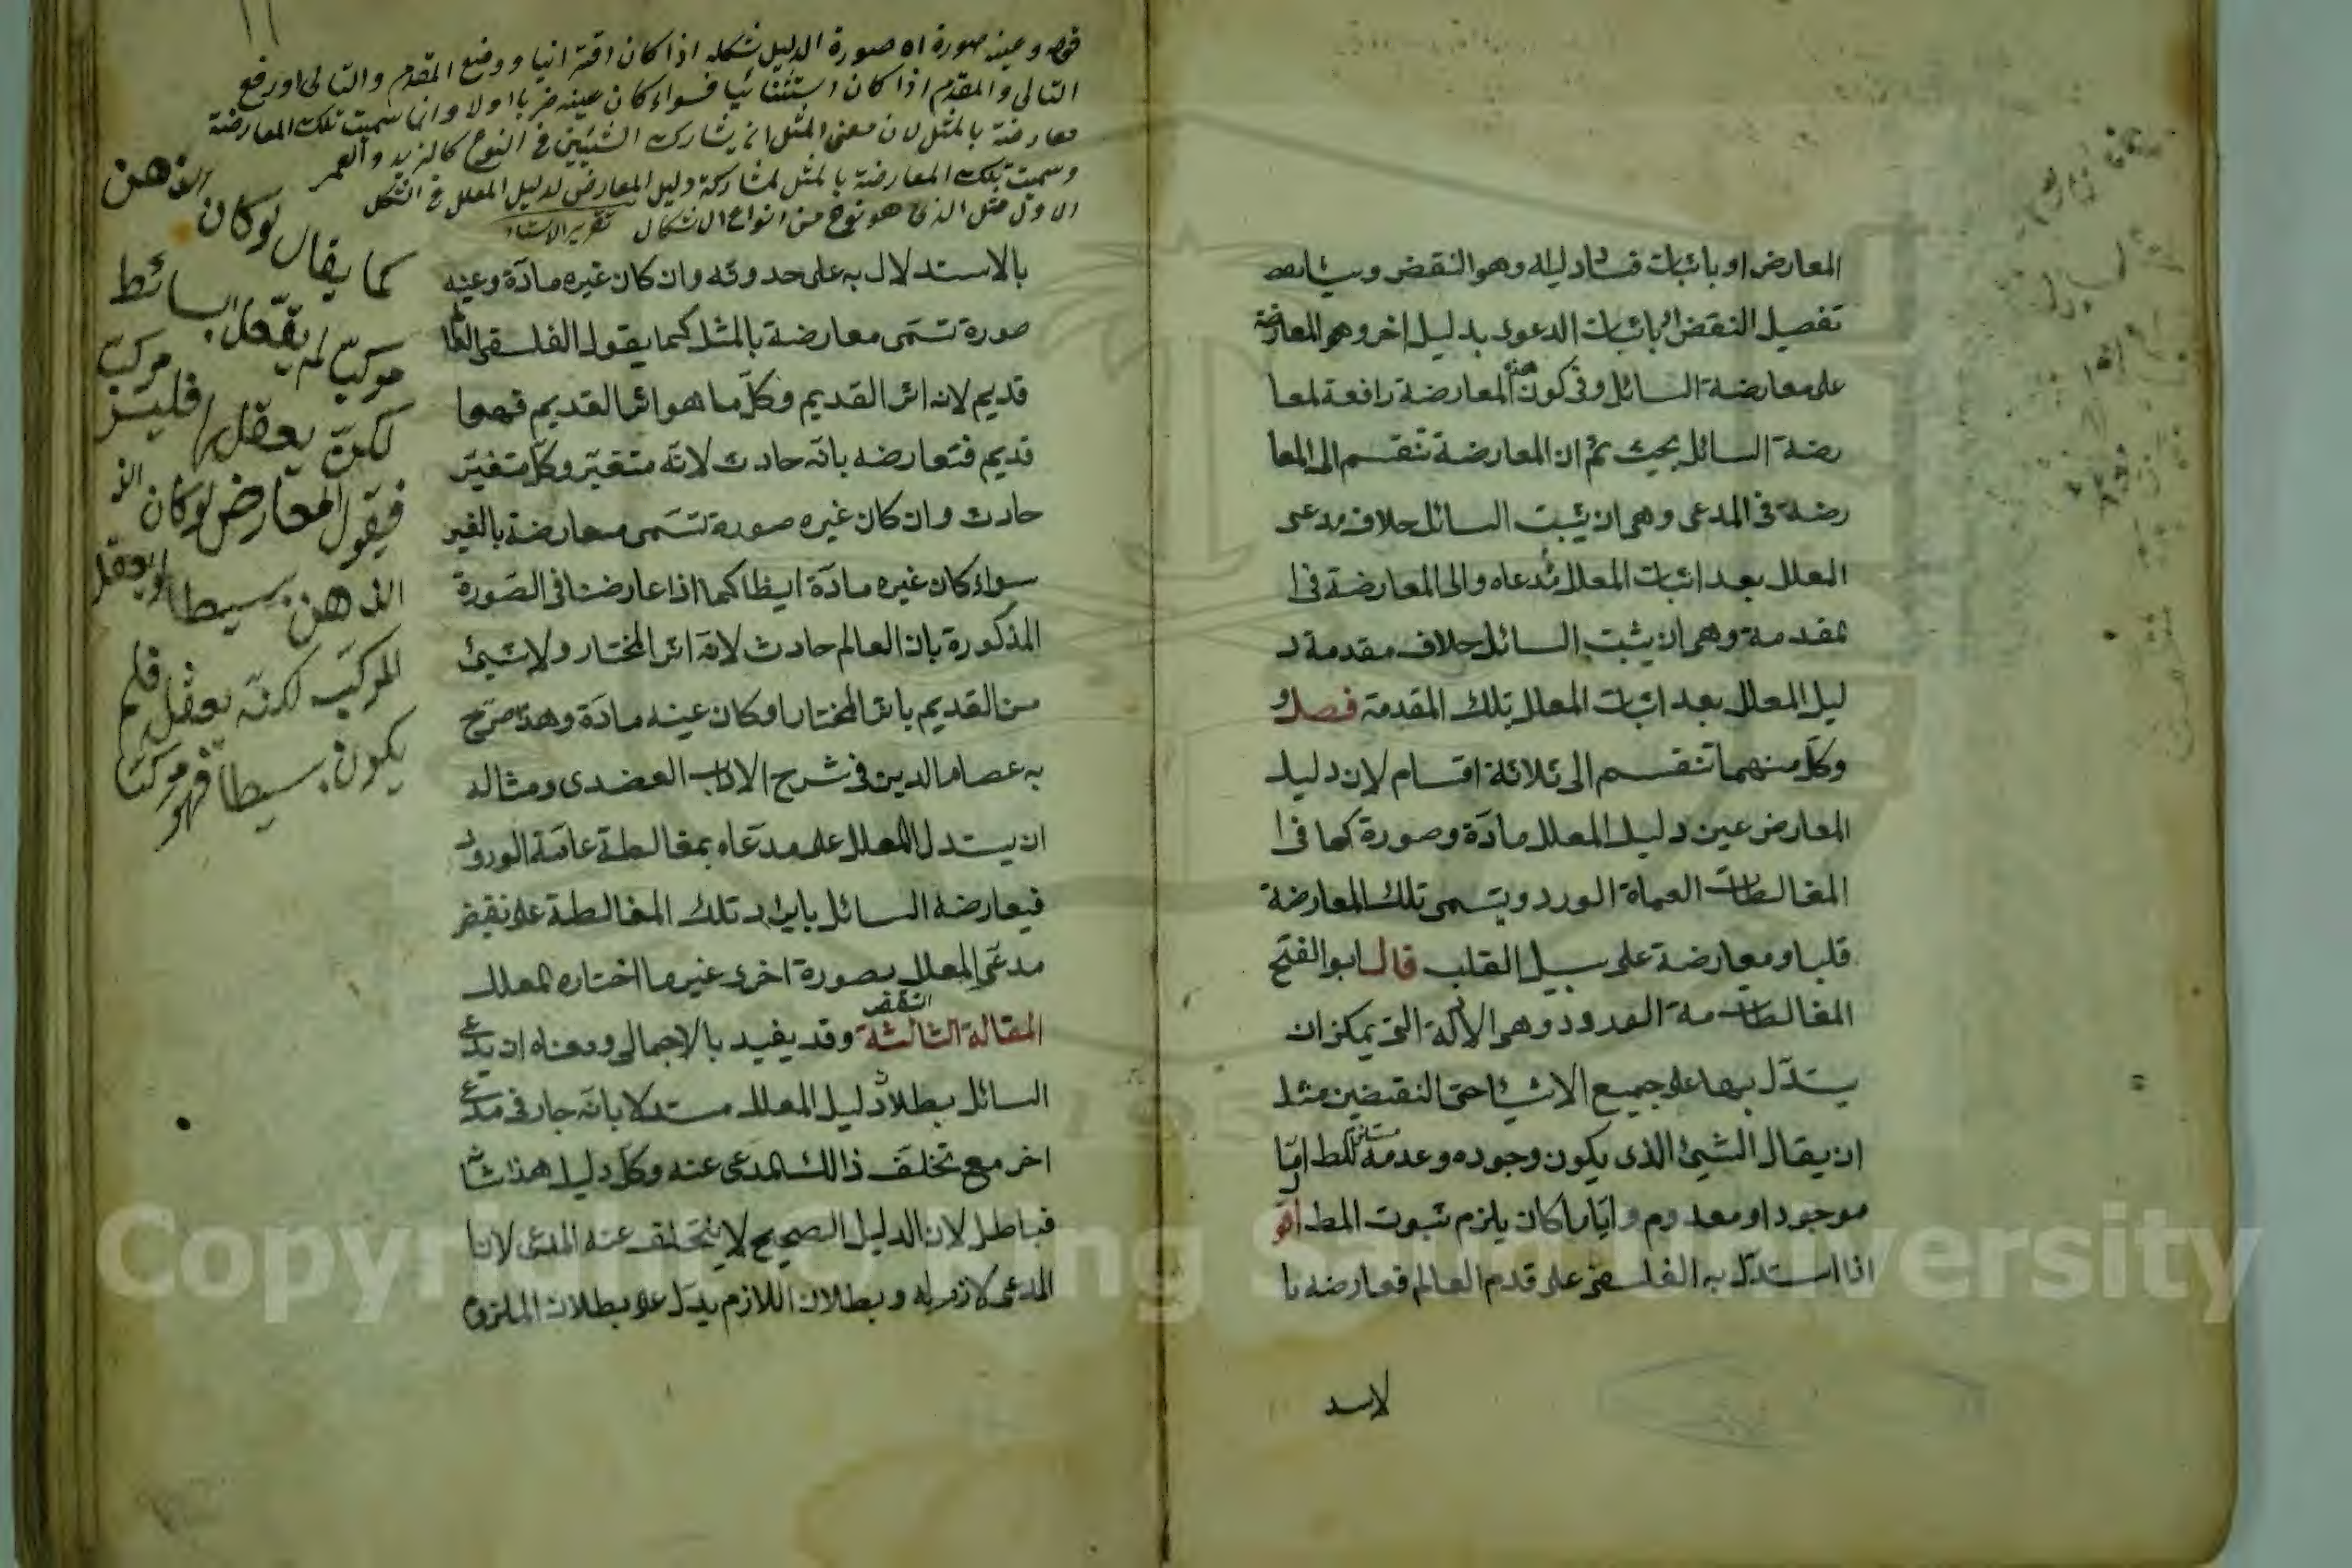 المعارض او باثبات فساد دليله وهو النقض وسيأتيك
تفصيل النقض او باثبات الدعوى بدليل اخر وهو المعارضة
على معارضة السائل وفى كون هذه المعارضة رافعة لمعا
رضة السائل بحيث ثم ان المعارضة تنقسم الى المعا
رضة فى المدعى وهى ان يثبت السائل خلاف مدعى
المعلل بعد اثبات المعلل مدعاه والى المعارضة فى ا
لمقدمة وهى ان يثبت السائل خلاف مقدمة د
ليل المعلل بعد اثبات المعلل تلك المقدمة فصل
وكل منهما تنقسم الى ثلاثة اقسام لان دليل
المعارض عين دليل المعلل مادّة وصورة كما فى ا
المغالطات العماة الورد ويسمى تلك المعارضة
قلبا ومعارضة على سبيل القلب قال ابو الفتح
المغالطات مة الورود وهى الادلة التى يمكن ان
يستدّل بها على جميع الاشياء حتى النقيضين مثل
ان يقال الشيئ الذى يكون وجوده وعدمه مستلزم للمط امّا
موجود او معدوم وايّا ما كان يلزم ثبوت المط اقو
اذا استدّل به الفلسفى على قدم العالم فعارضه با
لاسد
قوله وعينه صورة اه صورة الدليل شكله اذا كان اقترانيا ووضع المقدم والتالى او رفع
التالى والمقدم اذا كان استثنائيا فسواء كان عينه ضربا اولا وانما سميت تلك المعارضة
معارضة بالمثل لان معنى المثل ان يشارك الشيئين فى النوع كالزيد والعمر
وسميت تلك المعارضة بالمثل لمشاركة دليل المعارض لدليل المعلل فى الشكل
الاول مثل الذى هو نوع من انواع الاشكال تقرير الاستاد
بالاستدلال به على حدوثه وان كان غيره مادّة وعينه
صورة تسمّى معارضة بالمثل كما يقول الفلسفى العالم
قديم لانه اثر القديم وكلّ ما هو اثر القديم فهو
قديم فتعارضه بانّه حادث لانّه متغيّر وكلّ متغيّر
حادث وان كان غيره صورة تسّمى معارضة بالغير
سواء كان غيره مادّة ايظا كما اذا عارضنا فى الصّورة
المذكورة بان العالم حادث لانّه اثر المختار ولا شيئ
من القديم باثر المختار او كان عينه مادّة وهذا صرّح
به عصام الدين فى شرح الاداب العضدى ومثاله
ان يستدل المعلل على مدّعاه بمغالطة عامّة الورود
فيعارضه السائل بايراد تلك المغالطة على نقيض
مدعّى المعلل بصورة اخرى غير ما اختاره المعلل
المقالة الثالثة النقض وقد يفيد بالاجمالى ومعناه ان يدّعى
السائل بطلان دليل المعلل مستدلا بانّه جار فى مدّعى
اخر مع تخلّف ذالك المدعى عنه وكلّ دليل هذا شانه
فباطل لان الدليل الصحيح لا يتخلف عنه المدعى لان
المدعى لازم له وبطلان اللازم يدّل على بطلان الملزوم
كما يقال لو كان الذهن
مركبّ لم يتعقل البسائط
لكنّه يعقل فليس مركبّ
فيقول المعارض لو كان الذ
الذهن بسيطا لم يعقل
المركبّ لكنّه يعقل فلم
يكون بسيطا فهو مركبّ
Copyright © King Saud University